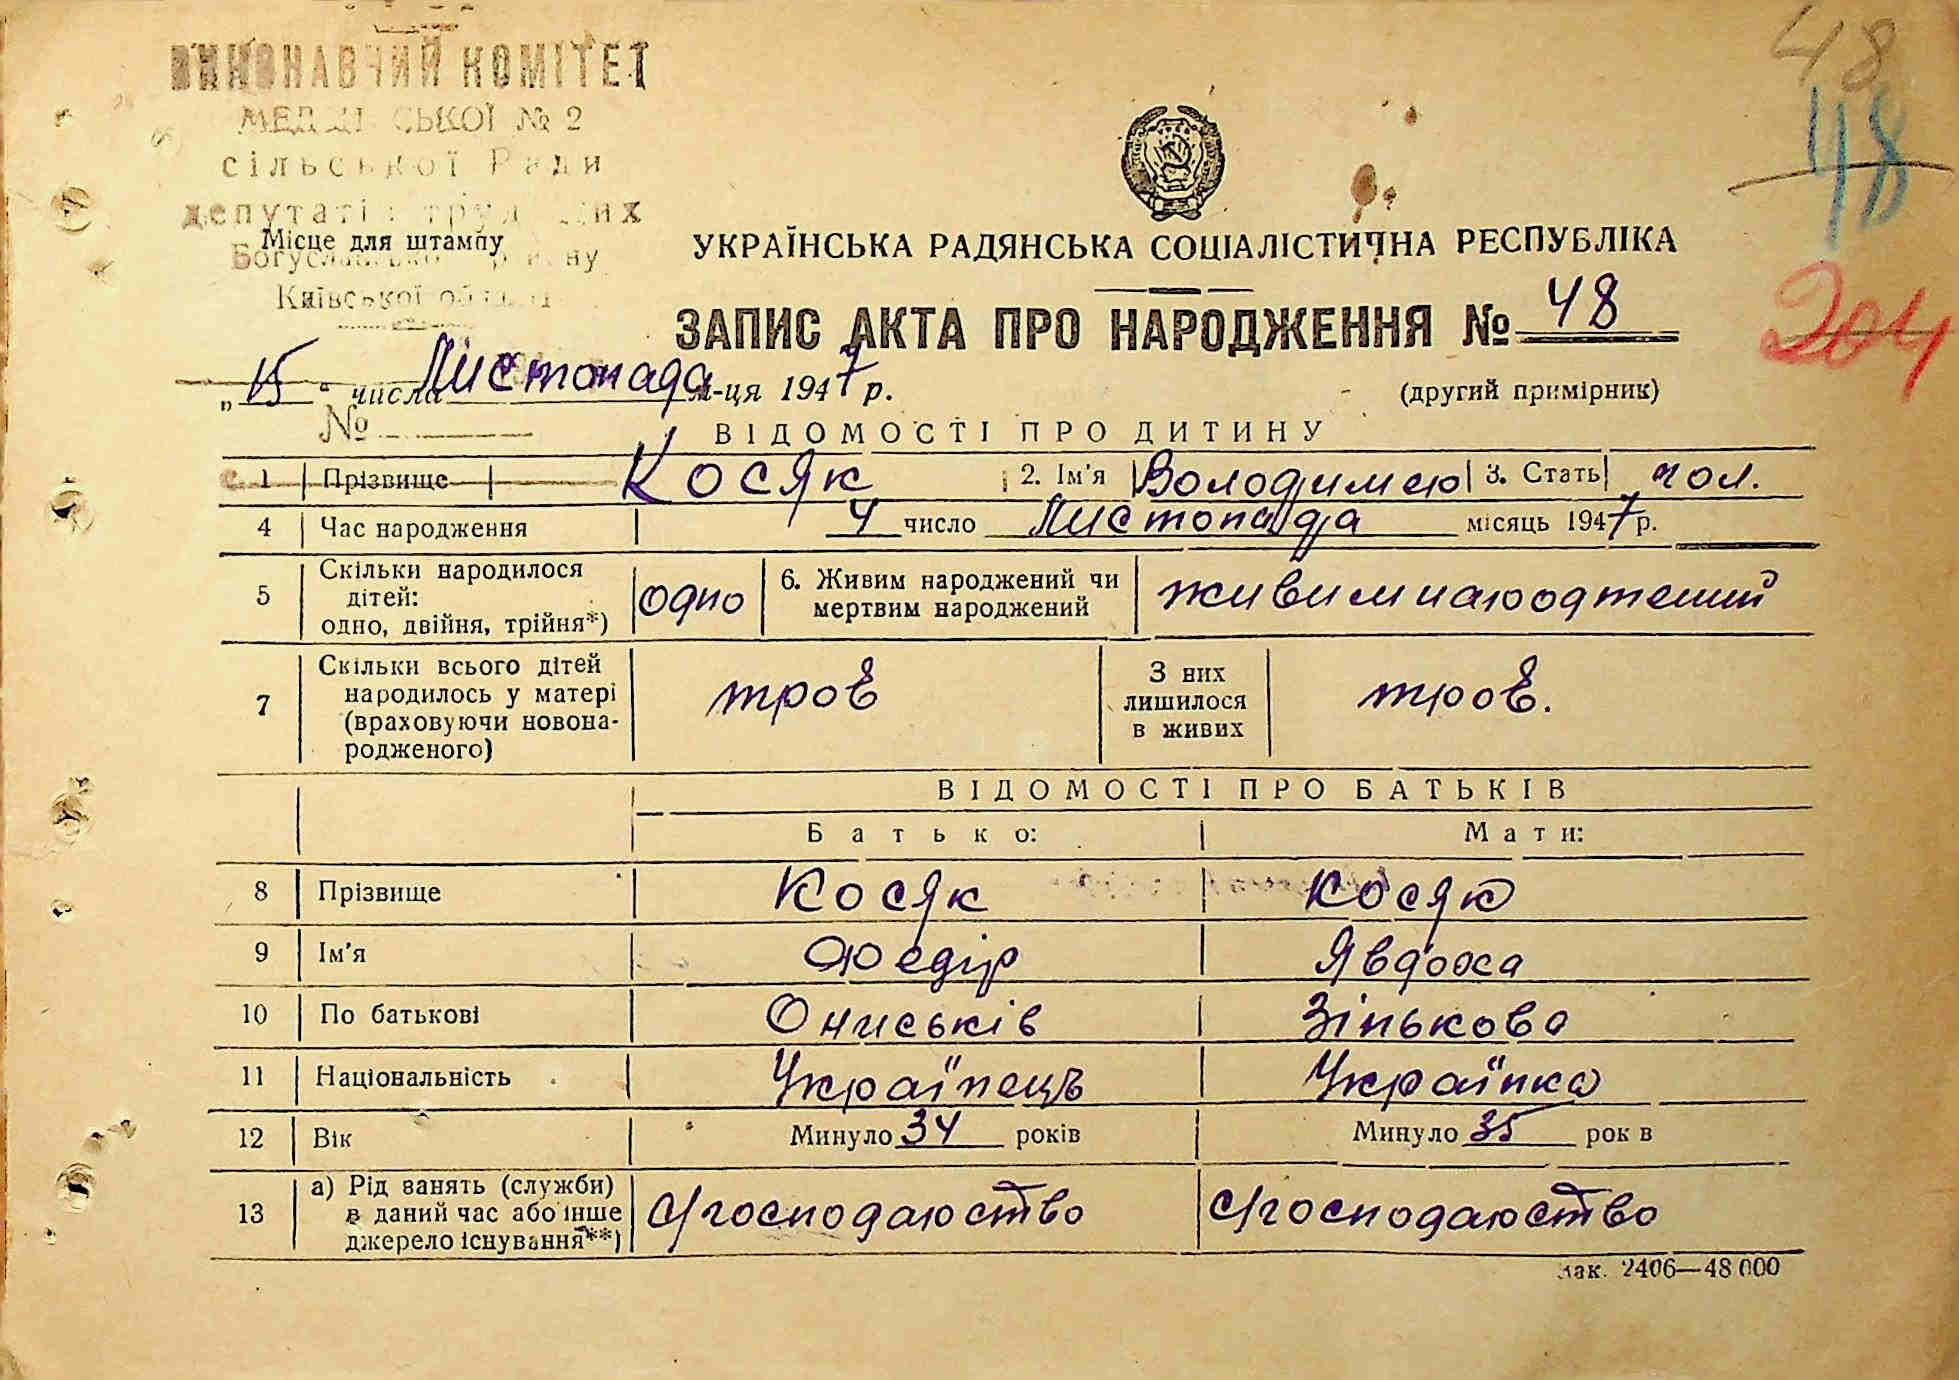 48
ВИКОНАВЧИЙ КОМІТЕТ
48
СЬКОЇ № 2
сільської Ради
депутатів трудящих
Місце для штампу
УКРАЇНСЬКА РАДЯНСЬКА СОЦІАЛІСТИЧНА РЕСПУБЛІКА
Богуславського району
Київської області
ЗАПИС АКТА ПРО НАРОДЖЕННЯ № 48
204
„15" числа Листопада м-ця 1947 р.
(другий примірник)
№
ВІДОМОСТІ ПРО ДИТИНУ
1 Прізвище Косяк 2. Ім'я Володимер 3. Стать чол.
4 Час народження 4 число Листопада місяць 1947 р.
5 Скільки народилося дітей: одно, двійня, трійня*) одно 6. Живим народжений чи мертвим народжений живим народжений
7 Скільки всього дітей народилось у матері (враховуючи новонародженого) троє З них лишилося в живих троє.
ВІДОМОСТІ ПРО БАТЬКІВ
Батько: Мати:
8 Прізвище Косяк Косяк
9 Ім'я Федір Явдоха
10 По батькові Ониськів Зінькова
11 Національність Українець Українка
12 Вік Минуло 34 років Минуло 35 рок в
13 а) Рід занять (служби) в даний час або інше джерело існування**) С/господарство С/господарство
Зак. 2406—48 000